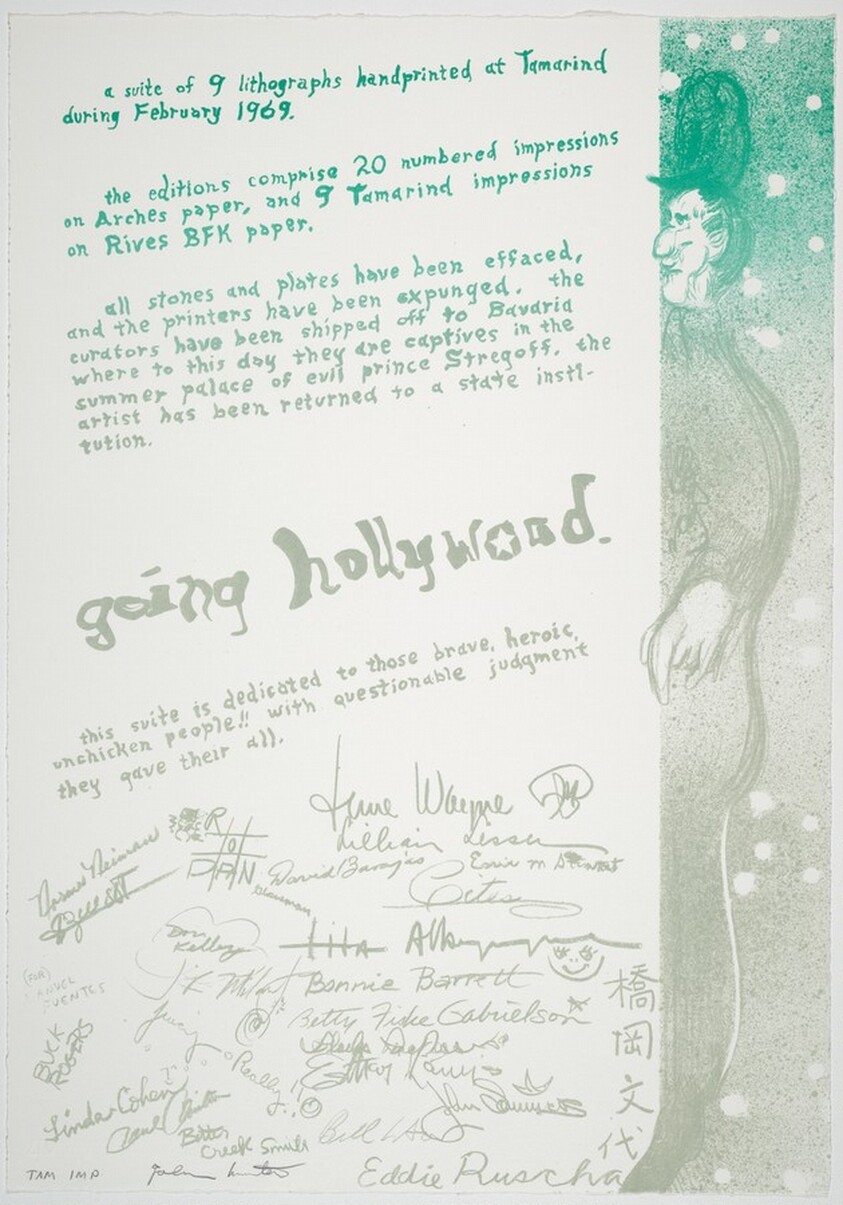 a suite of 9 lithographs handprinted at Tamarind
during February 1969.
the editions comprise 20 numbered impressions
on Arches paper, and 9 Tamarind impressions
on Rives BFK paper.
all stones and plates have been effaced,
and the printers have been expunged. the
curators have been shipped off to Bavaria
where to this day they are captives in the
summer palace of evil prince Stregoff. the
artist has been returned to a state insti-
tution.
going hollywood.
this suite is dedicated to those brave, heroic,
unchicken people!! with questionable judgment
they gave their all.
June Wayne
Lillian Lesser
David Barajas
Serge
Don Kelley
Lita Albuquerque
Bonnie Barrett
(FOR)
FUENTES
Betty Fiske Gabrielson
BUCK
ROGERS
Really
Linda Cohen
Bitter
Creek Smith
Bill
橋岡文代
Eddie Ruscha
TAM IMP